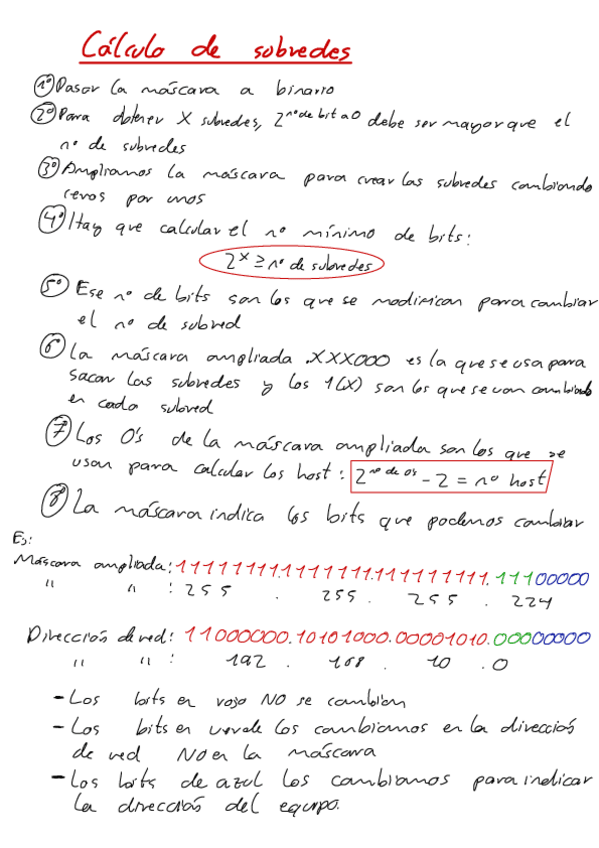 Cálculo de subredes
1º Pasar la máscara a binario
2º Para obtener X subredes, 2^nº de bit a 0 debe ser mayor que el
nº de subredes
3º Ampliamos la máscara para crear las subredes cambiando
ceros por unos
4º Hay que calcular el nº mínimo de bits:
2^x ≥ nº de subredes
5º Ese nº de bits son los que se modifican para cambiar
el nº de subred
6º La máscara ampliada .XXX000 es la que se usa para
sacar las subredes y los 1(X) son los que se van cambiando
en cada subred
7º Los 0's de la máscara ampliada son los que se
usan para calcular los host: 2^nº de 0's - 2 = nº host
8º La máscara indica los bits que podemos cambiar
Ej:
Máscara ampliada: 11111111.11111111.11111111.11100000
" " : 255 . 255 . 255 . 224
Dirección de red: 11000000.10101000.00001010.00000000
" " : 192 . 168 . 10 . 0
- Los bits en rojo NO se cambian
- Los bits en verde los cambiamos en la dirección
de red NO en la máscara
- Los bits de azul los cambiamos para indicar
la dirección del equipo.